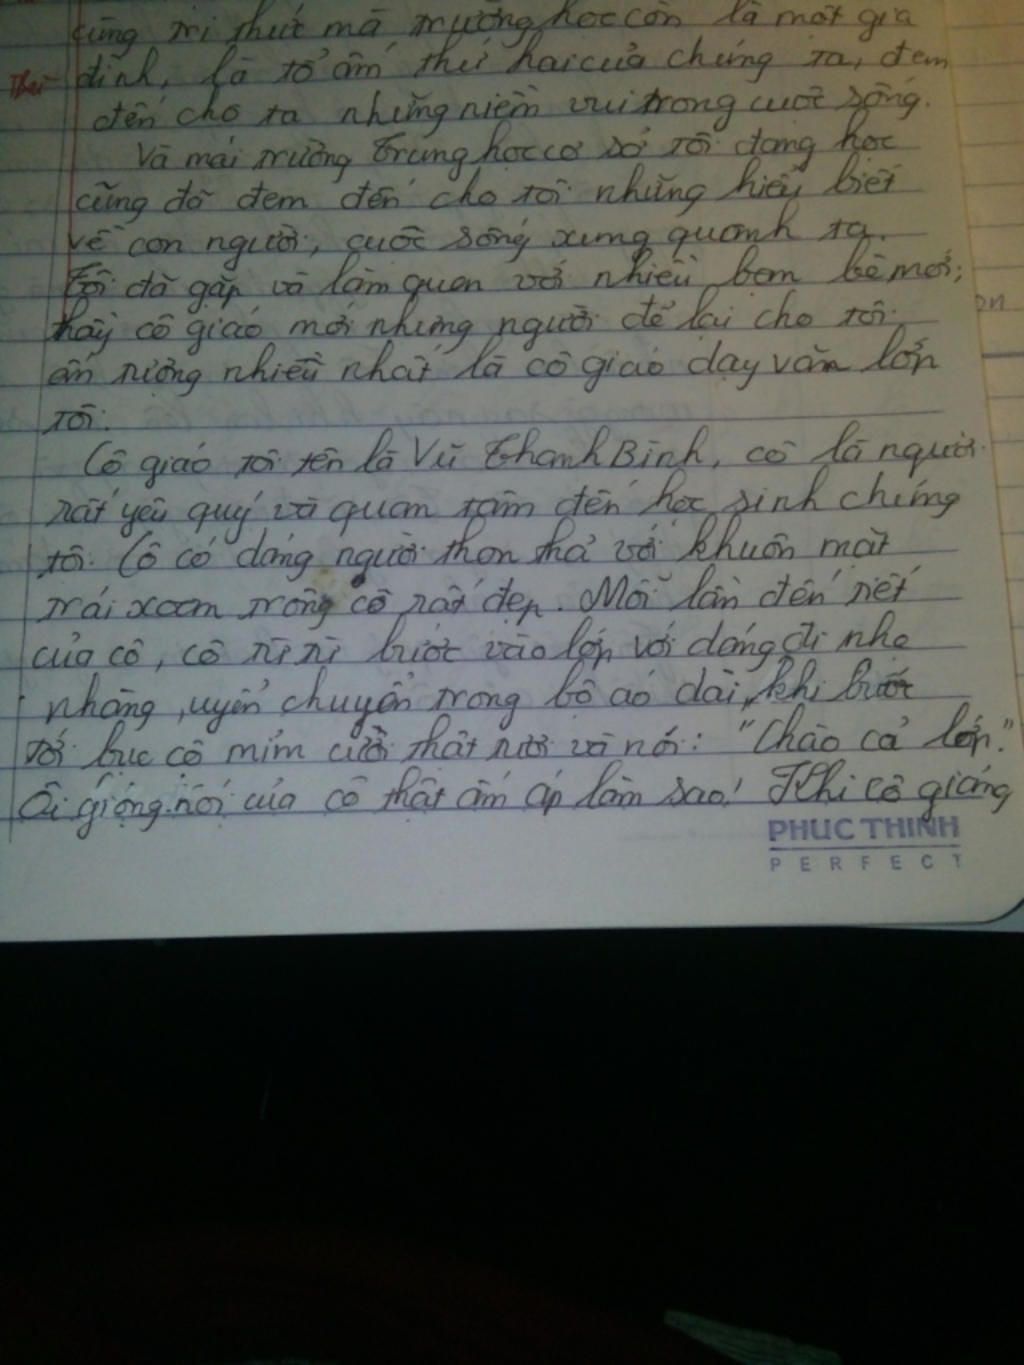 cũng tri thức mà trường học còn là một gia
đình, là tổ ấm thứ hai của chúng ta, đem
đến cho ta những niềm vui trong cuộc sống.
Và mái trường Trung học cơ sở tôi đang học
cũng đã đem đến cho tôi những hiểu biết
về con người, cuộc sống xung quanh ta.
Tôi đã gặp và làm quen với nhiều bạn bè mới;
thầy cô giáo mới nhưng người để lại cho tôi
ấn tượng nhiều nhất là cô giáo dạy văn lớp
tôi.
Cô giáo tôi tên là Vũ Thanh Bình, cô là người
rất yêu quý và quan tâm đến học sinh chúng
tôi. Cô có dáng người thon thả với khuôn mặt
trái xoan trông cô rất đẹp. Mỗi lần đến tiết
của cô, cô từ từ bước vào lớp với dáng đi nhẹ
nhàng, uyển chuyển trong bộ áo dài, khi bước
tới bục cô mỉm cười thật tươi và nói: "Chào cả lớp."
Ôi giọng nói của cô thật ấm áp làm sao! Khi cô giảng
PHUC THINH
PERFECT